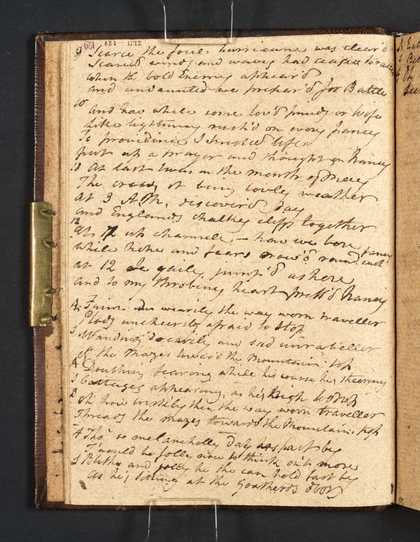 9 Scarce the foul hurricane was clear'd
Scarce winds and waves had ceas'd to rattle
When the bold Enemy appear'd
and undaunted we prepar'd for Battle
10 And now while some lov'd friend or wife
Like lightning rush'd on every fancy
To providence I trusted life
put up a prayer and thought on Nancy
11 At last twas in the month of May
The crew it being lovely weather
At 3 A.M. discover'd day
and England's chalky cliffs together
12 At 7 up channel how we bore
while hopes and fears rush'd round each fancy
at 12 I gaily jump'd ashore
and to my throbing heart press'd Nancy
Faint and wearily the way worn traveller
Plods uncheerily afraid to stop
Wand'ring drearily and sad unraveller
of the Mazes toward the Mountain top
Doubting fearing while his course he's steering
Cottages appearing, as he's nigh to drop
oh how briskly then the way worn Traveller
Threads the mazes toward the Mountain top
Tho' so melancholy Day has past by
T'would be folly now to think on't more
Blithe and jolly he the can hold fast by
As he's sitting at the Goatherd's door